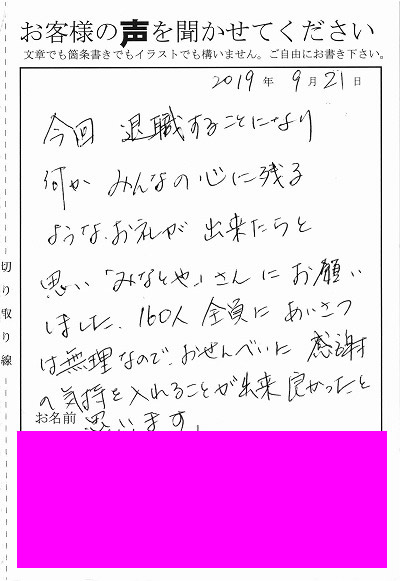 お客様の声を聞かせてください
文章でも箇条書きでもイラストでも構いません。ご自由にお書き下さい。
2019年 9月21日
今回 退職することになり
何か みんなの心に残る
ような、お礼が 出来たらと
思い「みなとや」さんに お願い
しました、160人 全員に あいさつ
は無理なので、おせんべいに 感謝
の気持を入れることが出来 良かったと
思います。
お名前
切り取り線